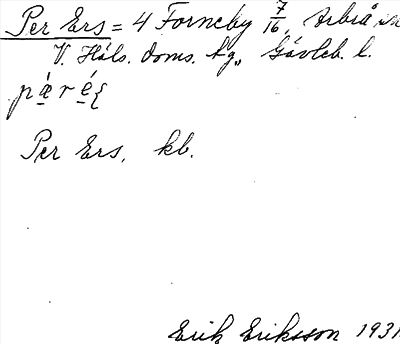 Per Ers = 4 Forneby 7/16, Arbrå sn
V. Häls. doms. tg., Gävleb. l.
Per Ers, kb.
Erik Eriksson 1931